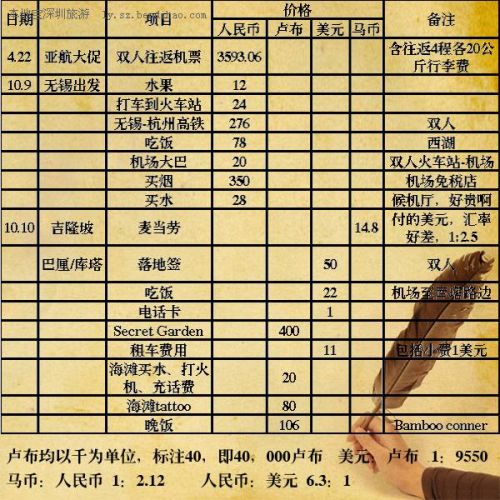 本地宝深圳旅游 ly.sz.bendibao.com
日期 项目 价格 备注
人民币 卢布 美元 马币
4.22 亚航大促 双人往返机票 3593.06 含往返4程各20公
斤行李费
10.9 无锡出发 水果 12
打车到火车站 24
无锡-杭州高铁 276 双人
吃饭 78 西湖
机场大巴 20 双人火车站-机场
买烟 350 机场免税店
买水 28 候机厅，好贵啊
10.10 吉隆坡 麦当劳 14.8 付的美元，汇率
好差，1:2.5
巴厘/库塔 落地签 50 双人
吃饭 22 机场至金巴兰路边
电话卡 1
Secret Garden 400
租车费用 11 包括小费1美元
海滩买水、打火
机、充话费 20
海滩tattoo 80
晚饭 106 Bamboo conner
卢布均以千为单位，标注40，即40，000卢布 美元：卢布 1：9550
马币：人民币 1：2.12 人民币：美元 6.3：1